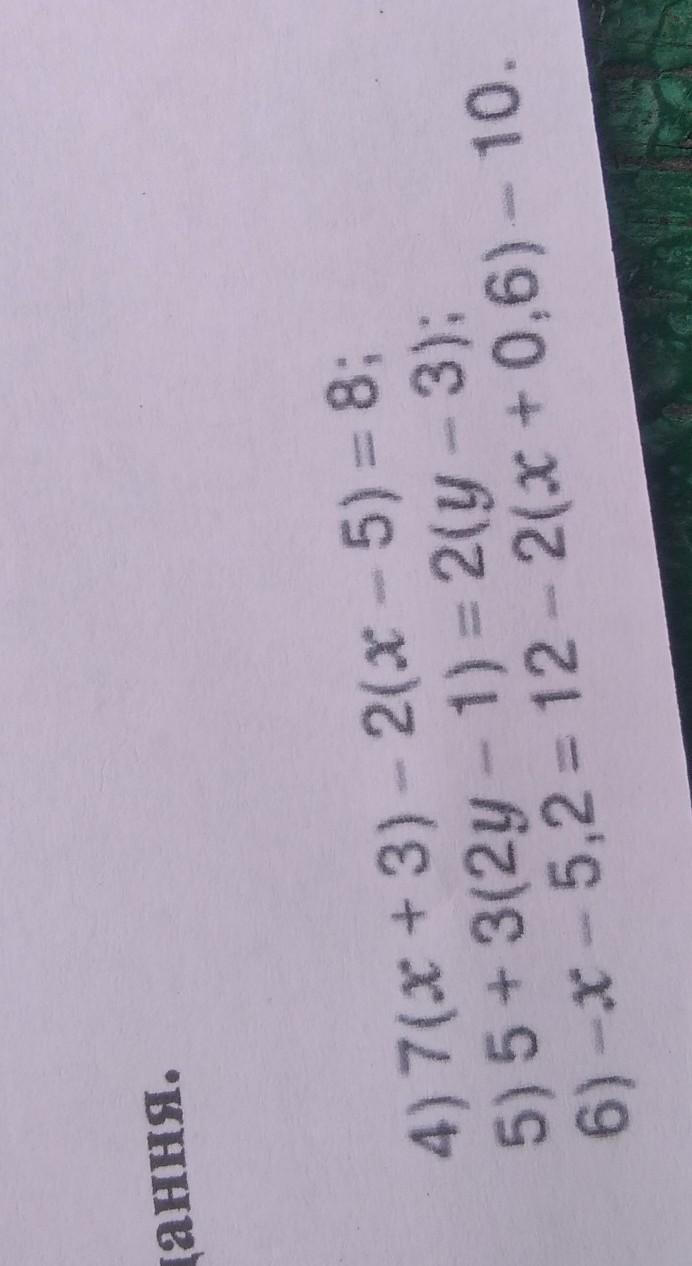 4) 7(x + 3) – 2(x – 5) = 8;
5) 5 + 3(2y – 1) = 2(y – 3);
6) –x – 5,2 = 12 – 2(x + 0,6) – 10.